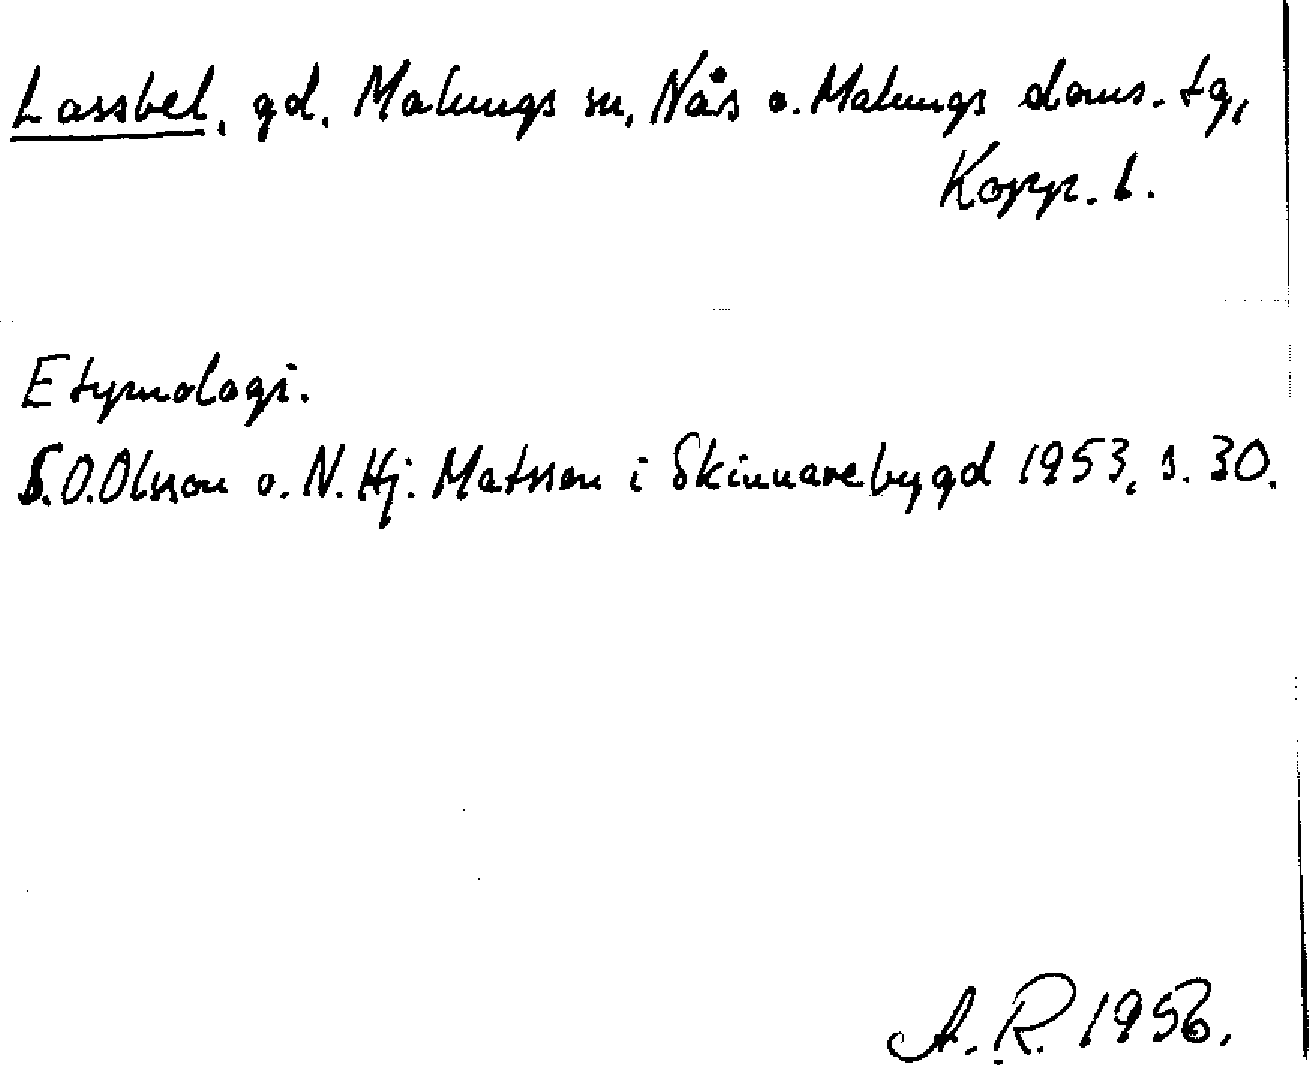 Lassbel, gd. Malungs sn, Nås o. Malungs doms. tg,
Kopp. l.
Etymologi.
S.O.Olsson o. N. Hj. Matsson i Skinnarebygd 1953, s. 30.
A. R. 1956.